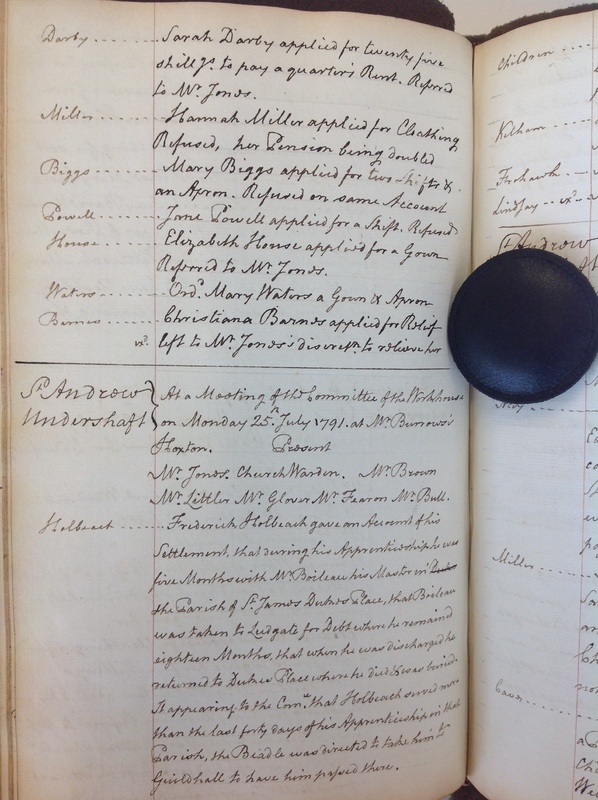 Darby ...... Sarah Darby applied for twenty five
shillgs. to pay a quarter's Rent. Referred
to Mr. Jones.
Miller ...... Hannah Miller applied for Cloathing
Refused, her Pension being doubled
Biggs ...... Mary Biggs applied for two Shifts &
an Apron. Refused on same Account
Powell ...... Jane Powell applied for a Shift. Refused
House ...... Elizabeth House applied for a Gown
Referred to Mr. Jones.
Waters ...... Ord.d Mary Waters a Gown & Apron
Barnes ...... Christiana Barnes applied for Relief
left to Mr. Jones's discretn. to relieve her
St. Andrew
Undershaft
At a Meeting of the Committee of the Workhouse
on Monday 25th. July 1791. at Mr. Burrows's
Hoxton. Present
Mr. Jones. Church Warden. Mr. Brown
Mr. Littler Mr. Glover Mr. Fearon Mr. Bull.
Holbeach ...... Frederick Holbeach gave an Account of his
Settlement, that during his Apprenticeship he was
five Months with Mr. Boileau his Master in
the Parish of St. James Dukes Place, that Boileau
was taken to Ludgate for Debt where he remained
eighteen Months, that when he was discharged he
returned to Dukes Place where he died & was buried
It appearing to the Come. that Holbeach served more
than the last forty days of his Apprenticeship in that
Parish, the Beadle was directed to take him to
Guildhall to have him passed there.
Children ....
Kelham ....
Lindsay
St. Andrew
Miller ....